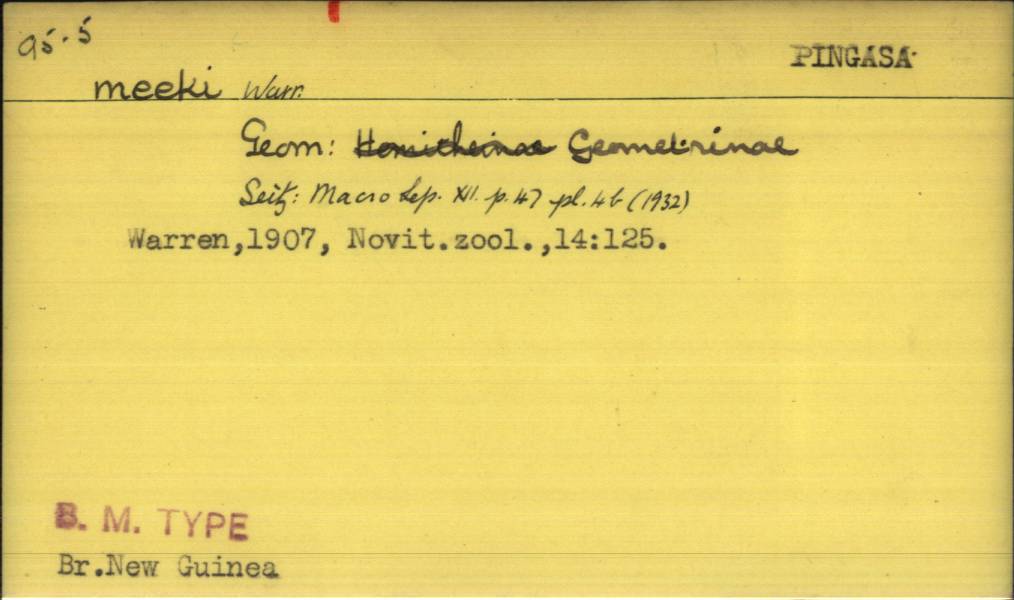 95.5
PINGASA
meeki Warr.
Geom: Hemitheinae Geometrinae
Seitz: Macro Lep. XII. p.47 pl.4b (1932)
Warren,1907, Novit.zool.,14:125.
B. M. TYPE
Br.New Guinea